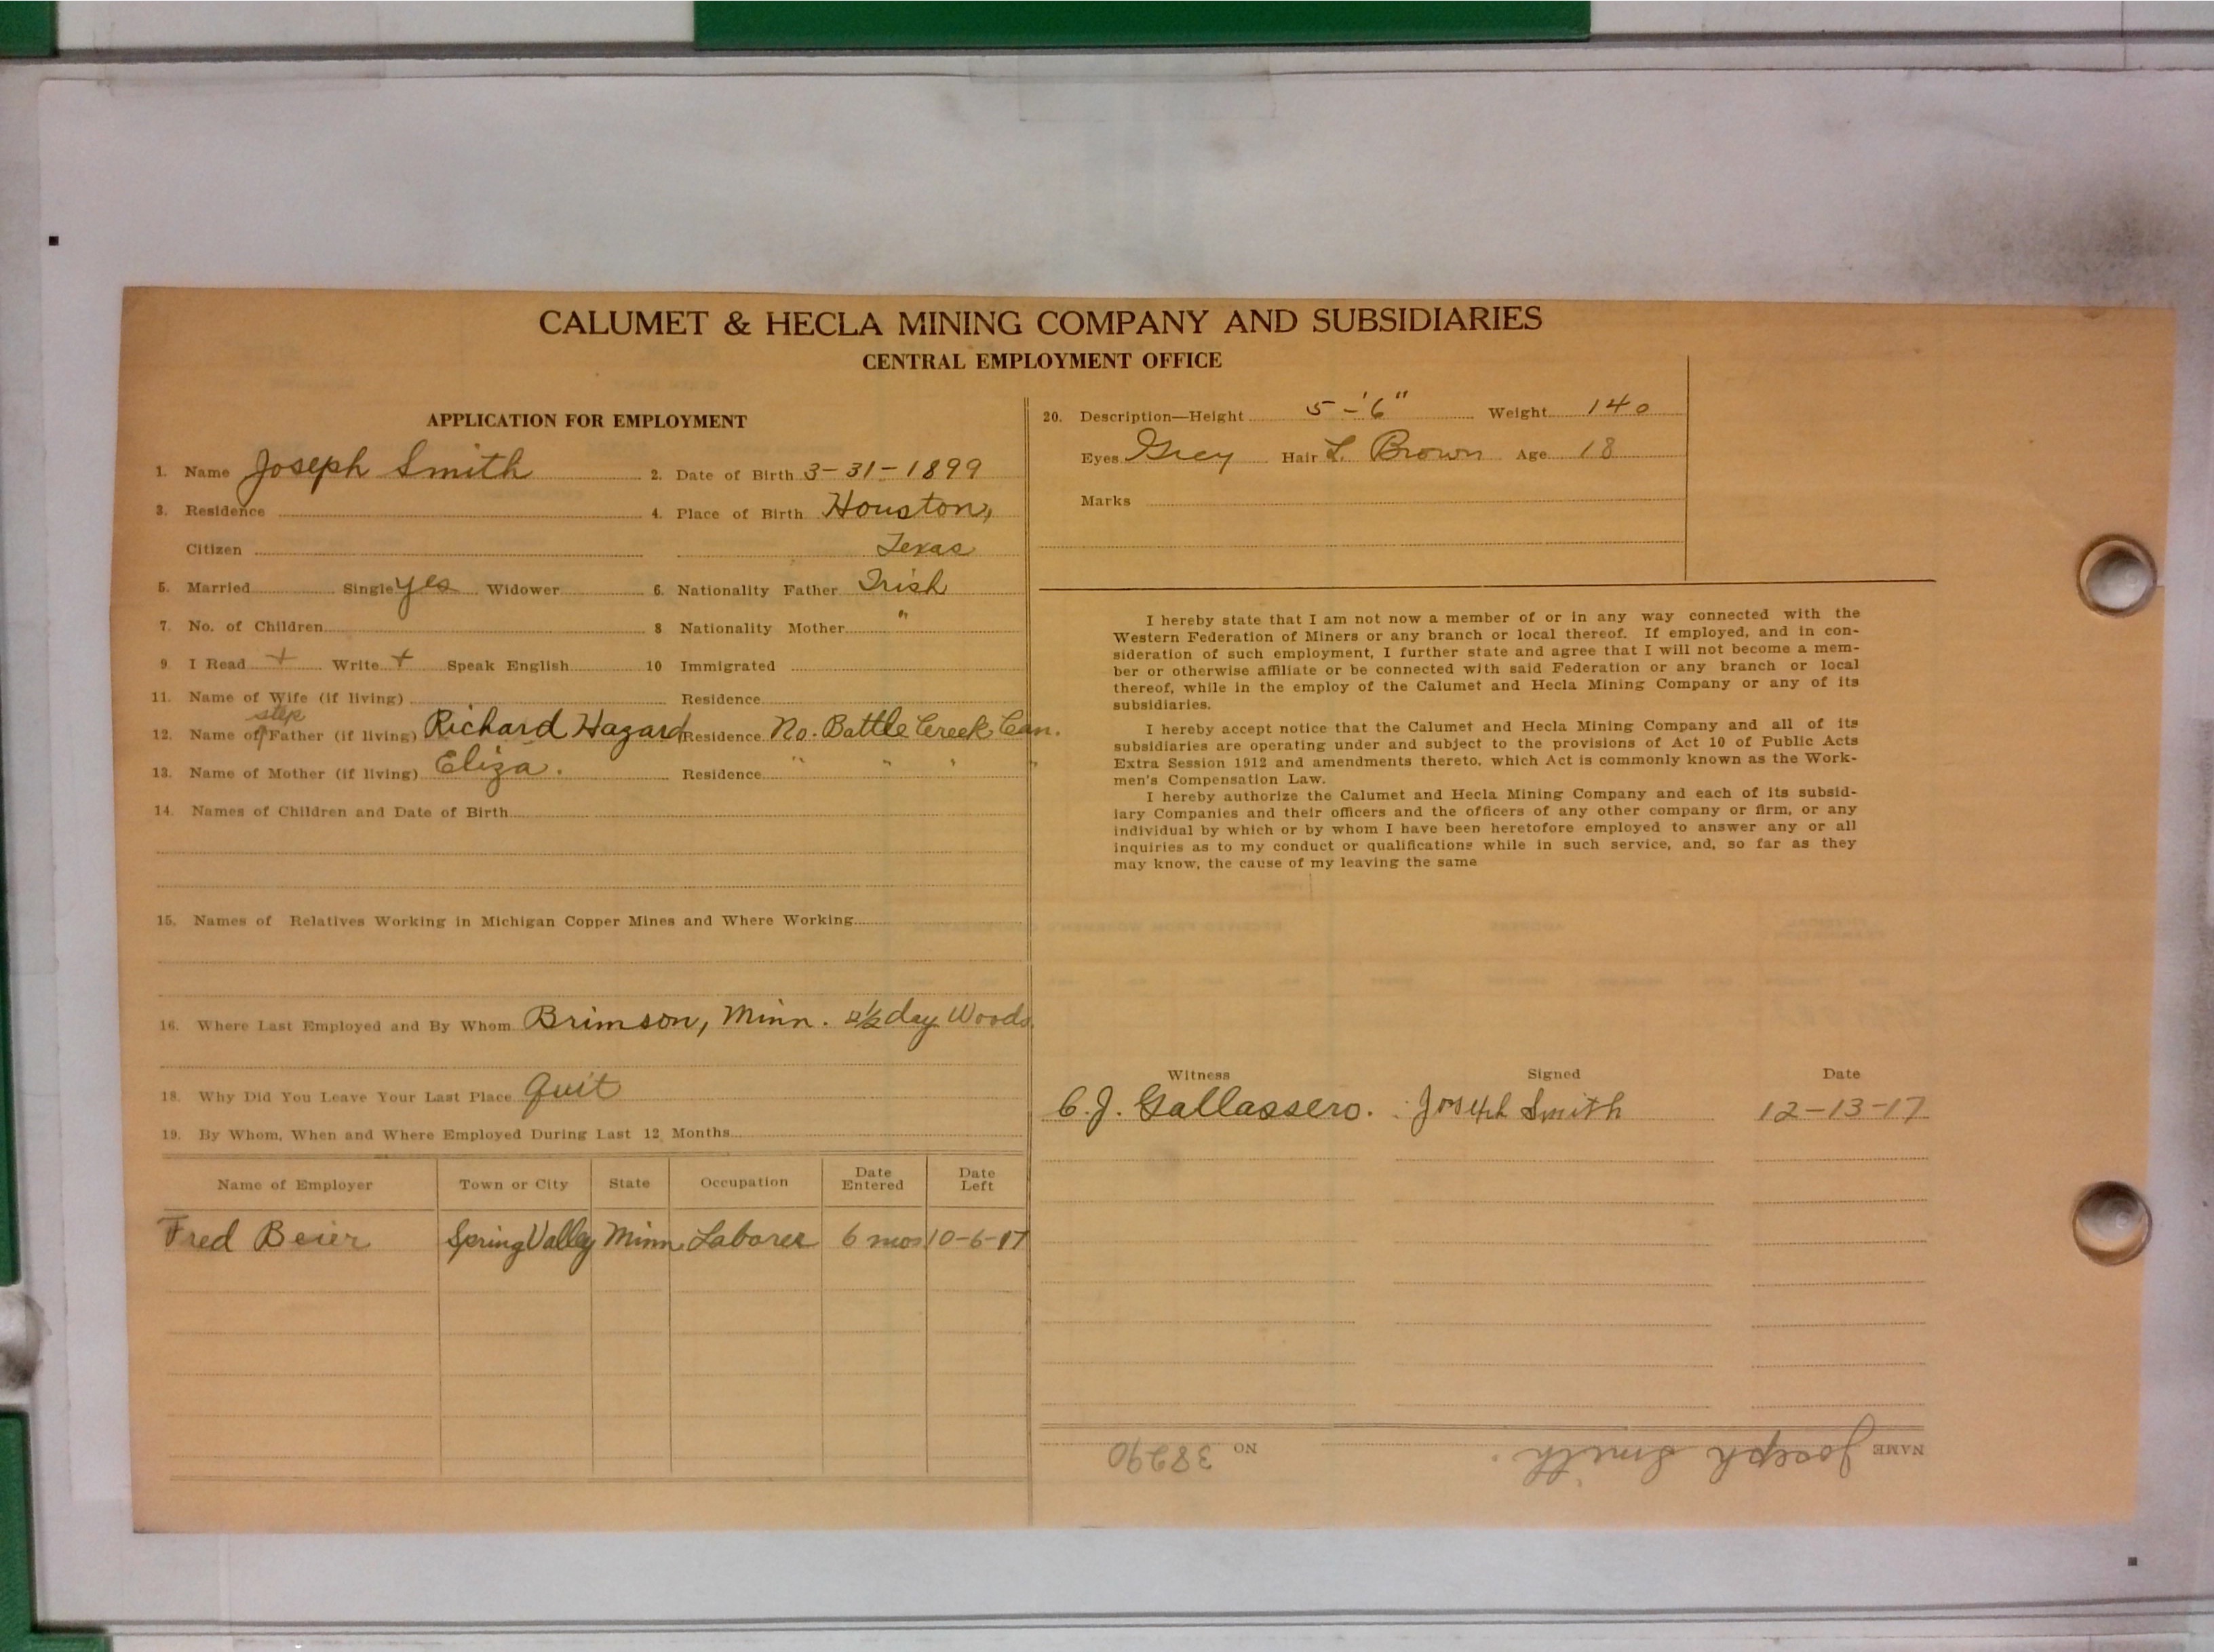 CALUMET & HECLA MINING COMPANY AND SUBSIDIARIES
CENTRAL EMPLOYMENT OFFICE
APPLICATION FOR EMPLOYMENT
1. Name Joseph Smith 2. Date of Birth 3-31-1899
3. Residence 4. Place of Birth Houston,
Citizen Texas
5. Married Single yes Widower 6. Nationality Father Irish
7. No. of Children 8 Nationality Mother "
9. I Read + Write + Speak English 10 Immigrated
11. Name of Wife (if living) Residence
step
12. Name of Father (if living) Richard Hazard Residence No. Battle Creek Can.
13. Name of Mother (if living) Eliza. Residence " " " "
14. Names of Children and Date of Birth
15. Names of Relatives Working in Michigan Copper Mines and Where Working
16. Where Last Employed and By Whom Brimson, Minn. 2½ day Woods
18. Why Did You Leave Your Last Place quit
19. By Whom, When and Where Employed During Last 12 Months
Name of Employer Town or City State Occupation Date Entered Date Left
Fred Beier Spring Valley Minn. Laborer 6 mos 10-6-17
20. Description—Height 5-'6" Weight 140
Eyes Grey Hair L. Brown Age 18
Marks
I hereby state that I am not now a member of or in any way connected with the
Western Federation of Miners or any branch or local thereof. If employed, and in con-
sideration of such employment, I further state and agree that I will not become a mem-
ber or otherwise affiliate or be connected with said Federation or any branch or local
thereof, while in the employ of the Calumet and Hecla Mining Company or any of its
subsidiaries.
I hereby accept notice that the Calumet and Hecla Mining Company and all of its
subsidiaries are operating under and subject to the provisions of Act 10 of Public Acts
Extra Session 1912 and amendments thereto, which Act is commonly known as the Work-
men's Compensation Law.
I hereby authorize the Calumet and Hecla Mining Company and each of its subsid-
iary Companies and their officers and the officers of any other company or firm, or any
individual by which or by whom I have been heretofore employed to answer any or all
inquiries as to my conduct or qualifications while in such service, and, so far as they
may know, the cause of my leaving the same
Witness Signed Date
C. J. Gallassero. Joseph Smith 12-13-17
NAME Joseph Smith. NO 38290